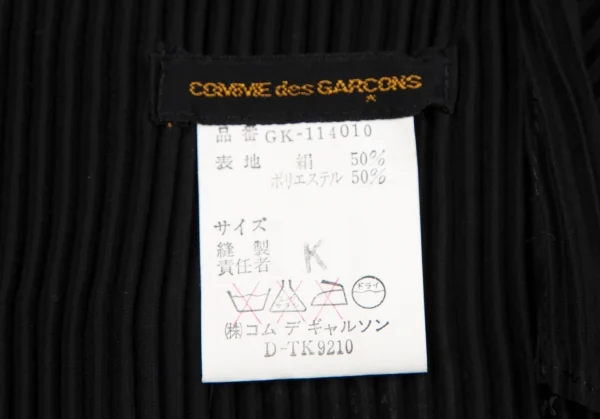 COMME des GARÇONS
品番 GK-114010
表地 絹 50%
ポリエステル 50%
サイズ
縫製
責任者 K
ドライ
(株)コム デ ギャルソン
D-TK9210